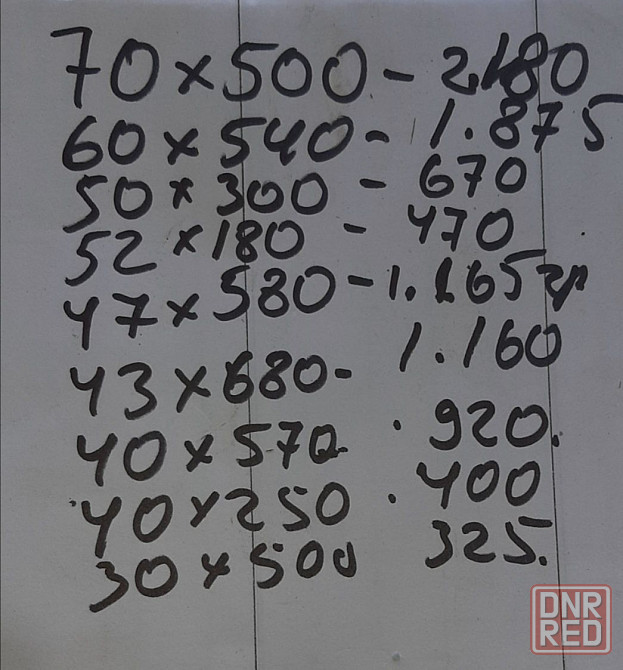 70 × 500 - 2.180
60 × 540 - 1.875
50 × 300 - 670
52 × 180 - 470
47 × 580 - 1.165 гр
43 × 680 - 1.160
40 × 570 . 920.
40 × 250 . 400
30 × 500 325.
DNR
RED